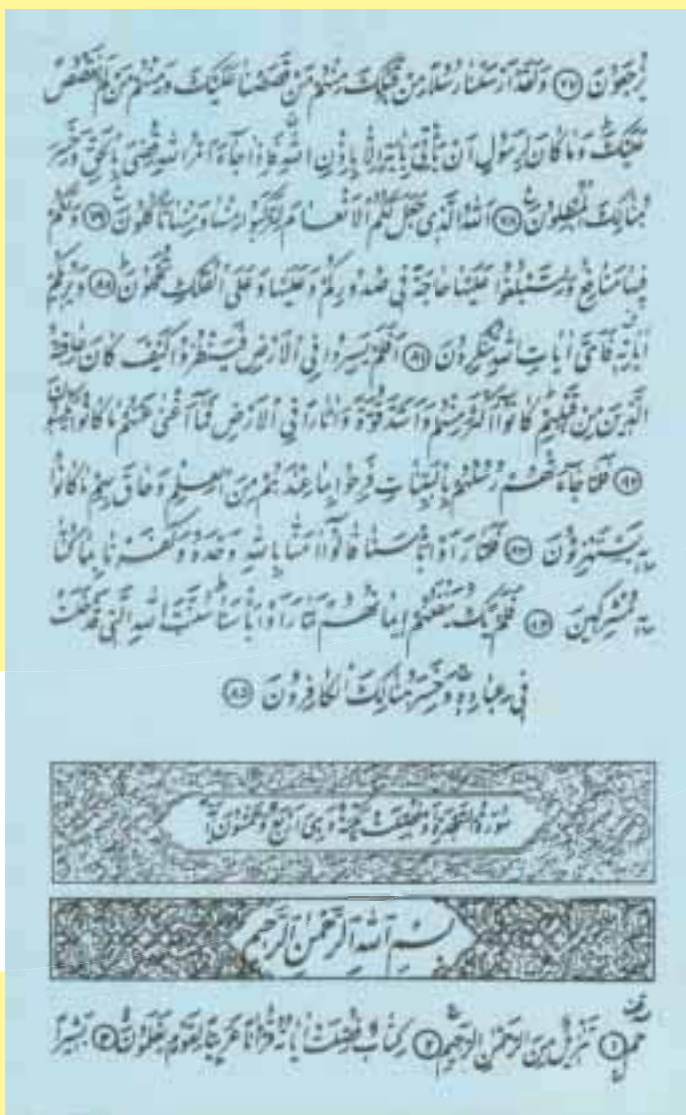 يُرْجَعُونَ ٧٧ وَلَقَدْ اَرْسَلْنَا رُسُلًا مِنْ قَبْلِكَ مِنْهُمْ مَنْ قَصَصْنَا عَلَيْكَ وَمِنْهُمْ مَنْ لَمْ نَقْصُصْ
عَلَيْكَ وَمَا كَانَ لِرَسُولٍ اَنْ يَأْتِيَ بِاٰيَةٍ اِلَّا بِاِذْنِ اللّٰهِ فَاِذَا جَآءَ اَمْرُ اللّٰهِ قُضِيَ بِالْحَقِّ وَخَسِرَ
هُنَالِكَ الْمُبْطِلُونَ ٧٨ اَللّٰهُ الَّذِي جَعَلَ لَكُمُ الْاَنْعَامَ لِتَرْكَبُوا مِنْهَا وَمِنْهَا تَأْكُلُونَ ٧٩ وَلَكُمْ
فِيهَا مَنَافِعُ وَلِتَبْلُغُوا عَلَيْهَا حَاجَةً فِي صُدُورِكُمْ وَعَلَيْهَا وَعَلَى الْفُلْكِ تُحْمَلُونَ ٨٠ وَيُرِيكُمْ
اٰيَاتِهِ فَاَيَّ اٰيَاتِ اللّٰهِ تُنْكِرُونَ ٨١ اَفَلَمْ يَسِيرُوا فِي الْاَرْضِ فَيَنْظُرُوا كَيْفَ كَانَ عَاقِبَةُ
الَّذِينَ مِنْ قَبْلِهِمْ كَانُوٓا اَكْثَرَ مِنْهُمْ وَاَشَدَّ قُوَّةً وَاٰثَارًا فِي الْاَرْضِ فَمَآ اَغْنٰى عَنْهُمْ مَا كَانُوا يَكْسِبُونَ
٨٢ فَلَمَّا جَآءَتْهُمْ رُسُلُهُمْ بِالْبَيِّنَاتِ فَرِحُوا بِمَا عِنْدَهُمْ مِنَ الْعِلْمِ وَحَاقَ بِهِمْ مَا كَانُوا
بِهِ يَسْتَهْزِؤُنَ ٨٣ فَلَمَّا رَاَوْا بَأْسَنَا قَالُوٓا اٰمَنَّا بِاللّٰهِ وَحْدَهُ وَكَفَرْنَا بِمَا كُنَّا
بِهِ مُشْرِكِينَ ٨٤ فَلَمْ يَكُ يَنْفَعُهُمْ اِيمَانُهُمْ لَمَّا رَاَوْا بَأْسَنَا سُنَّتَ اللّٰهِ الَّتِي قَدْ خَلَتْ
فِي عِبَادِهِ وَخَسِرَ هُنَالِكَ الْكَافِرُونَ ٨٥
سُورَةُ السَّجْدَةِ وَفُصِّلَتْ مَكِّيَّةٌ وَهِيَ اَرْبَعٌ وَخَمْسُونَ اٰيَةً
بِسْمِ اللّٰهِ الرَّحْمٰنِ الرَّحِيمِ
حٰمٓ ١ تَنْزِيلٌ مِنَ الرَّحْمٰنِ الرَّحِيمِ ٢ كِتَابٌ فُصِّلَتْ اٰيَاتُهُ قُرْاٰنًا عَرَبِيًّا لِقَوْمٍ يَعْلَمُونَ ٣ بَشِيرًا